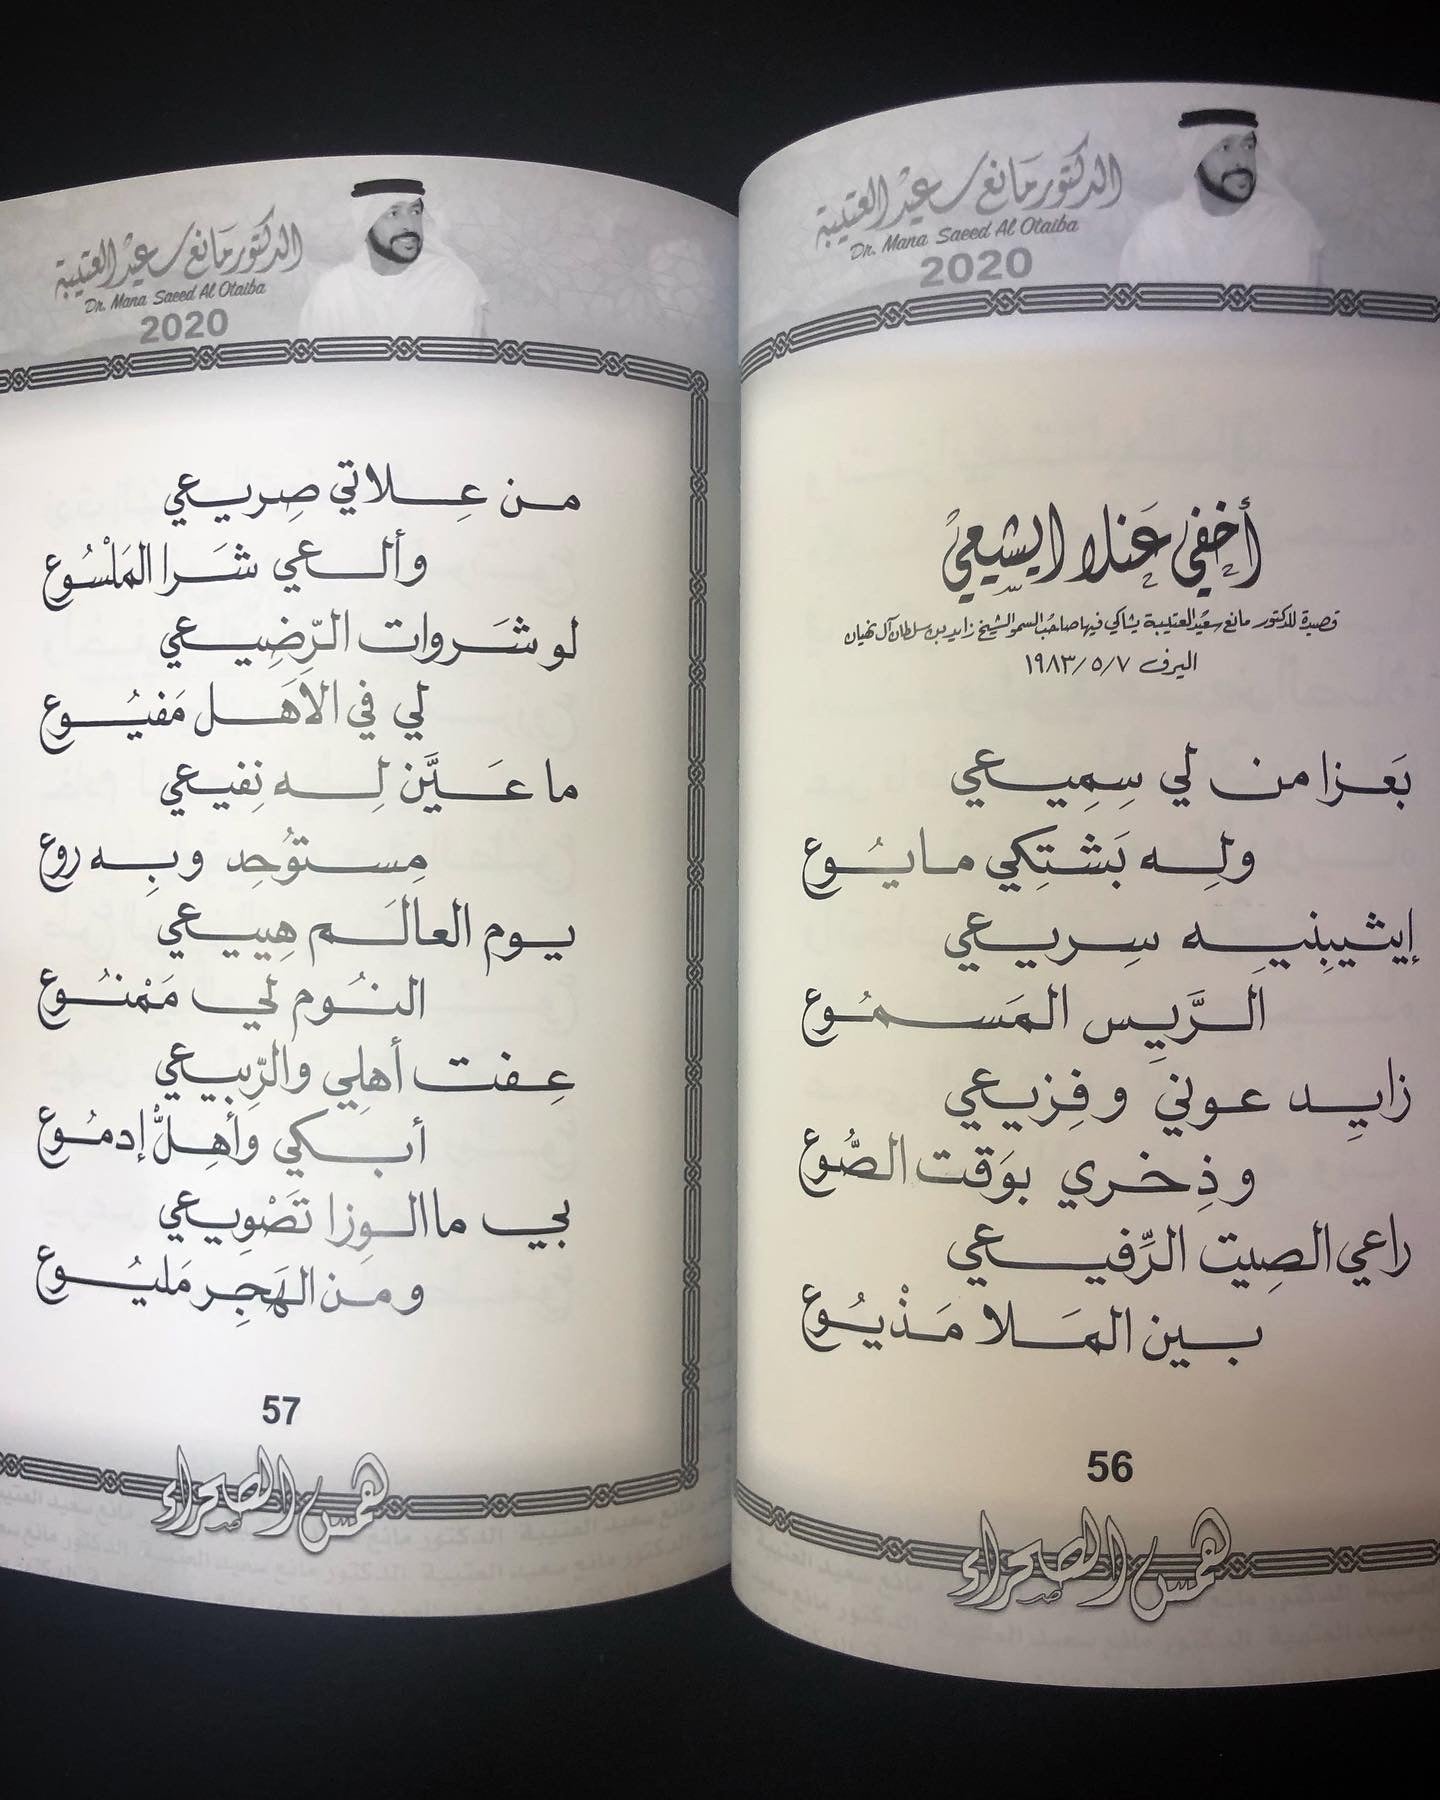 الدكتور مانع سعيد العتيبة
Dr. Mana Saeed Al Otaiba
2020
أخفي عنلا ايشيعي
قصيدة للدكتور مانع سعيد العتيبة يشاكي فيها صاحب السمو الشيخ زايد بن سلطان آل نهيان
اليرف ١٩٨٣/٥/٧
بَعزا من لي سِمِيعي
ولِه بَشتِكي ما يُوع
إيثيبِنِيه سِريعي
الرَّيِس المَسمُوع
زايِد عوني وفِزيعي
وذِخري بوَقت الصُّوع
راعي الصِيت الرِّفيعي
بين الملا مَذْيُوع
56
همس الصحراء
الدكتور مانع سعيد العتيبة
Dr. Mana Saeed Al Otaiba
2020
من عِلاتي صِريعي
وألعي شَرا المَلْسُوع
لو شَروات الرِّضِيعي
لي في الأهَل مَفيُوع
ما عَيَّن لِه نِفيعي
مِستوُحِد وبِه روع
يوم العالَم هِييعي
النُوم لي مَمْنُوع
عِفت أهلِي والرِّبيعي
أبكي وأهِلّْ إدمُوع
بي ما الوِزا تَصْوِيعي
ومن الهَجِر مَليُوع
57
همس الصحراء